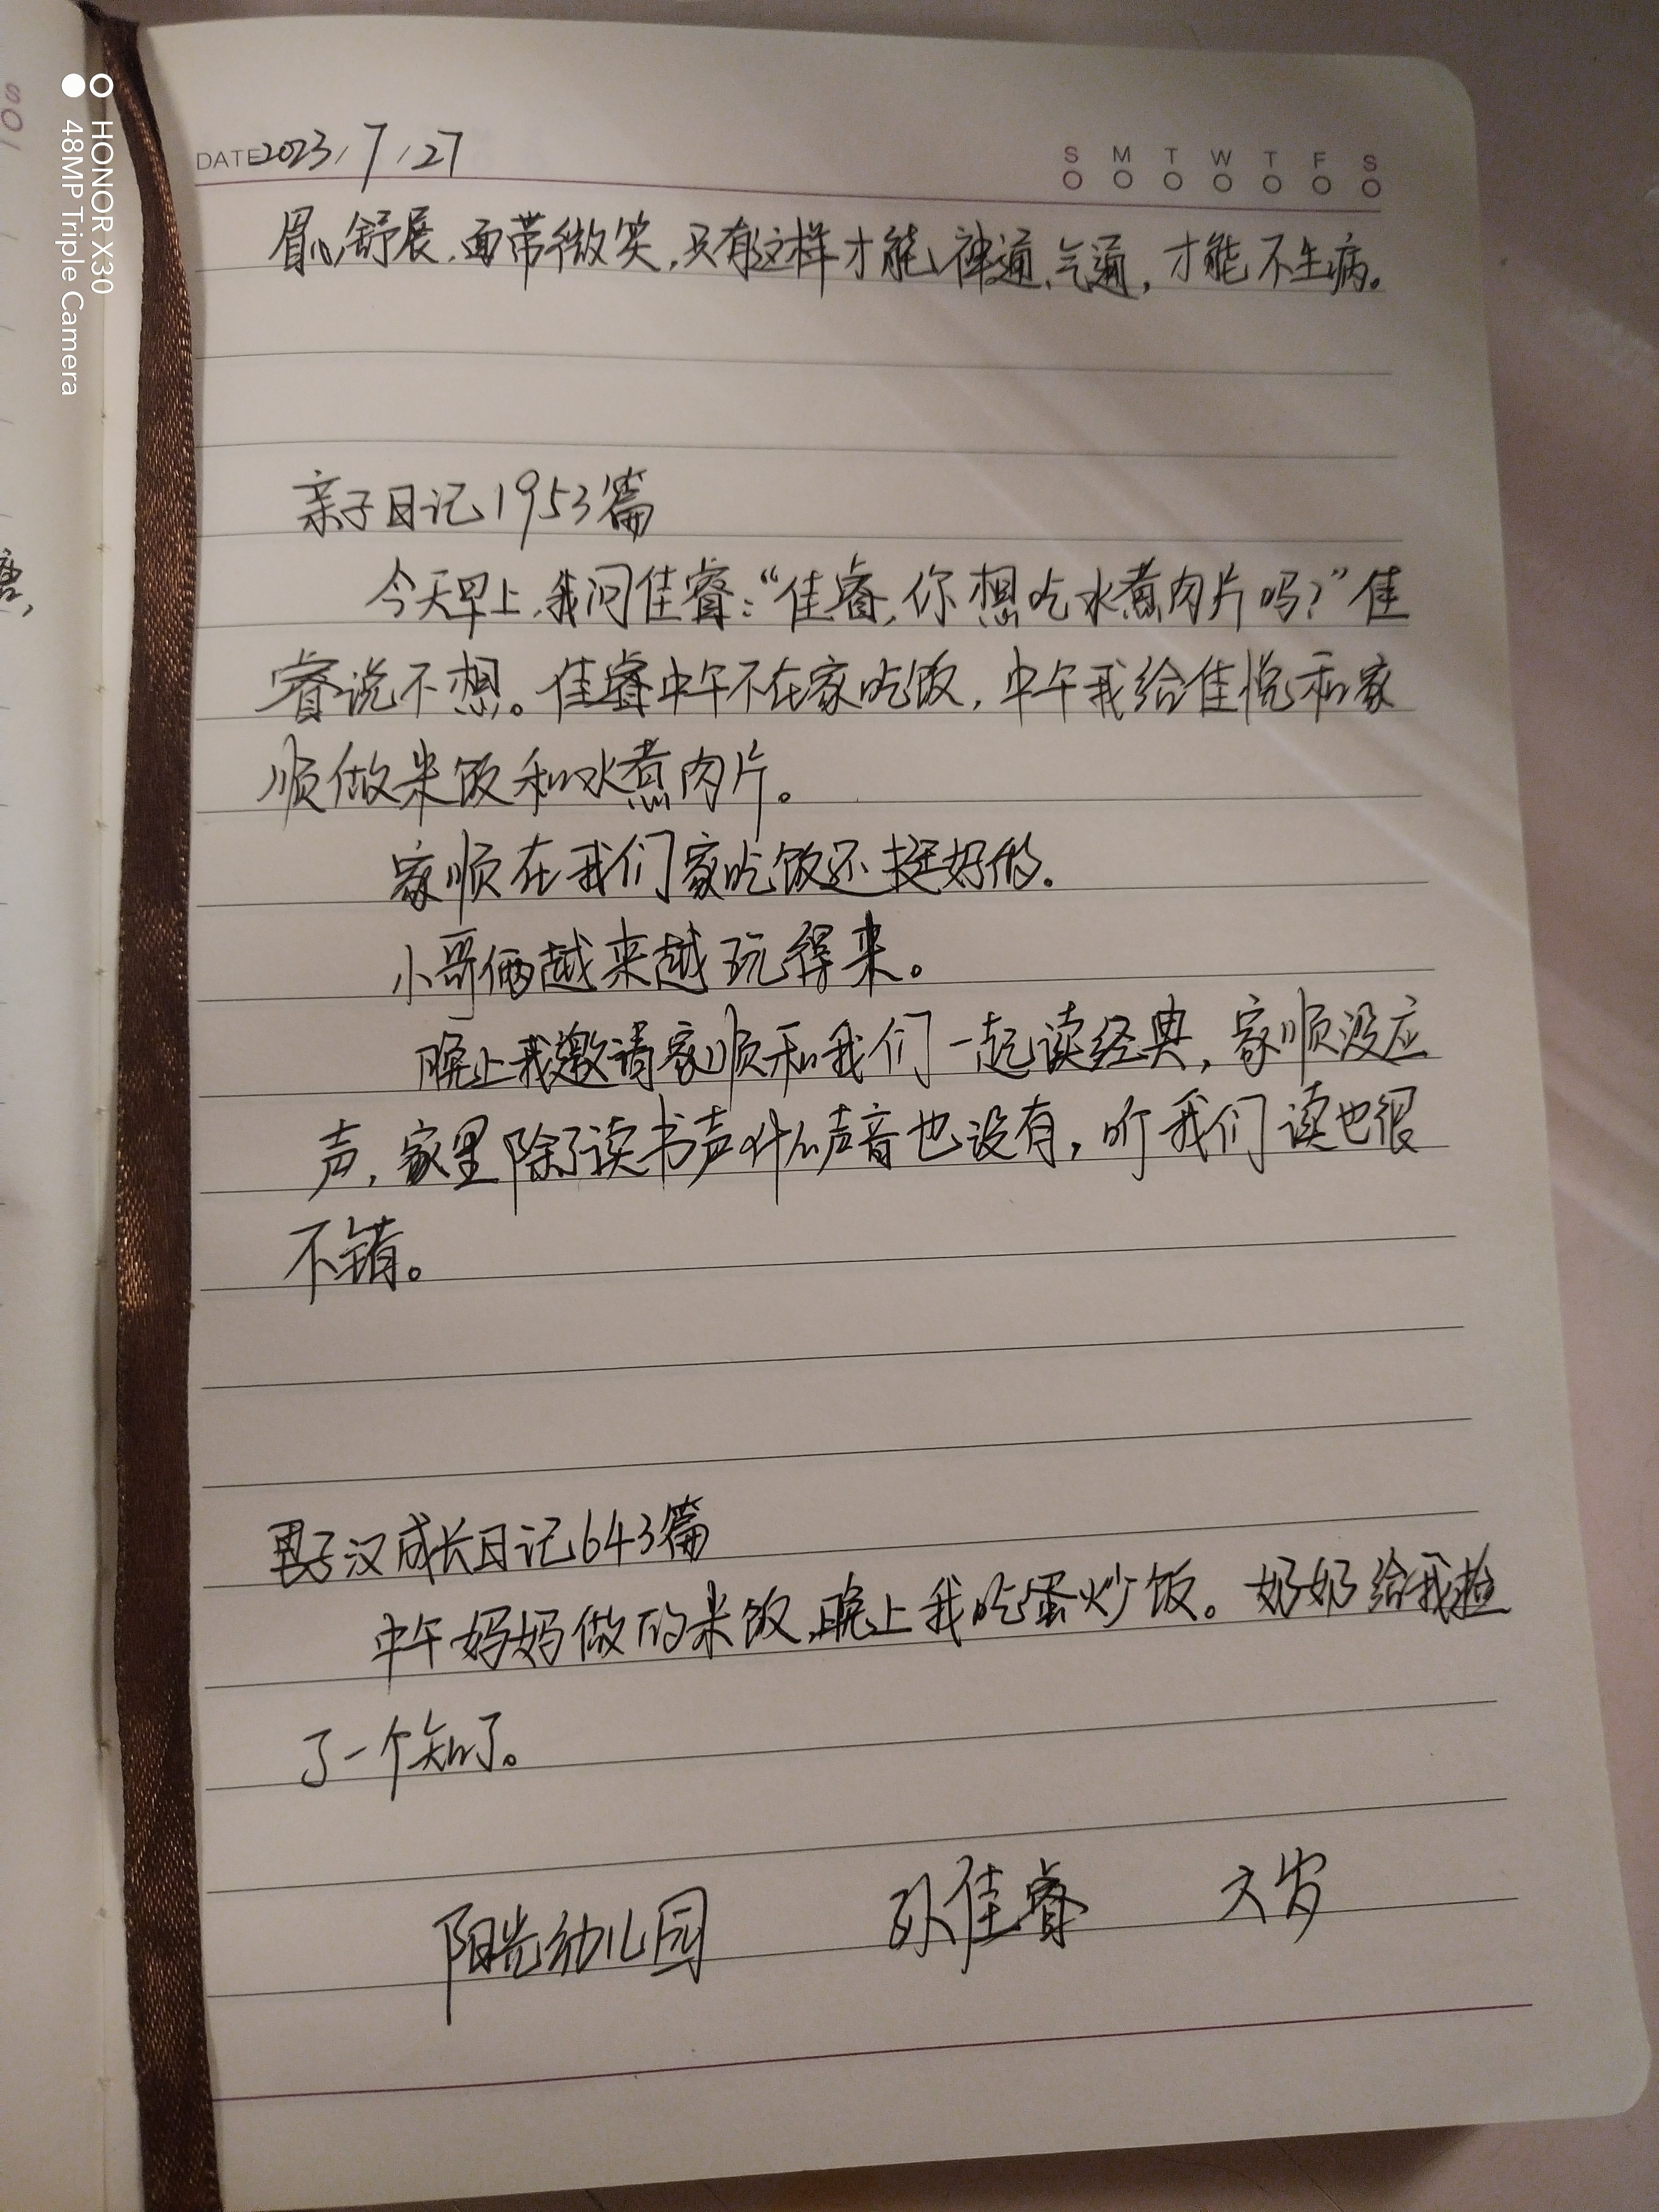 HONOR X30
48MP Triple Camera
DATE 2023/7/27
S M T W T F S
眉心舒展,面带微笑,只有这样才能神通、气通,才能不生病。
亲子日记1953篇
今天早上,我问佳睿:“佳睿,你想吃水煮肉片吗?”佳
睿说不想。佳睿中午不在家吃饭,中午我给佳悦和家
顺做米饭和水煮肉片。
家顺在我们家吃饭还挺好的.
小哥俩越来越玩得来。
晚上我邀请家顺和我们一起读经典,家顺没应
声,家里除了读书声什么声音也没有,听我们读也很
不错。
男子汉成长日记643篇
中午妈妈做的米饭,晚上我吃蛋炒饭。奶奶给我捡
了一个知了。
阳光幼儿园 孙佳睿 六岁